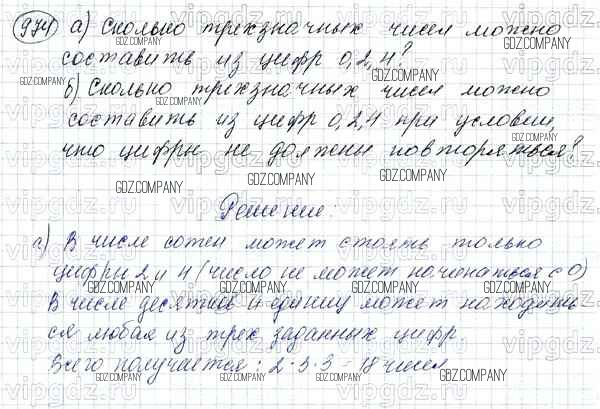 974 а) Сколько трехзначных чисел можно
составить из цифр 0,2,4?
б) Сколько трехзначных чисел можно
составить из цифр 0,2,4 при условии,
что цифры не должны повторяться?
Решение.
а) В числе сотен может стоять только
цифры 2 и 4 (число не может начинаться с 0)
В числе десятков и единиц может находить
ся любая из трех заданных цифр.
Всего получается: 2·3·3 = 18 чисел
GDZ.COMPANY
vipgdz.ru